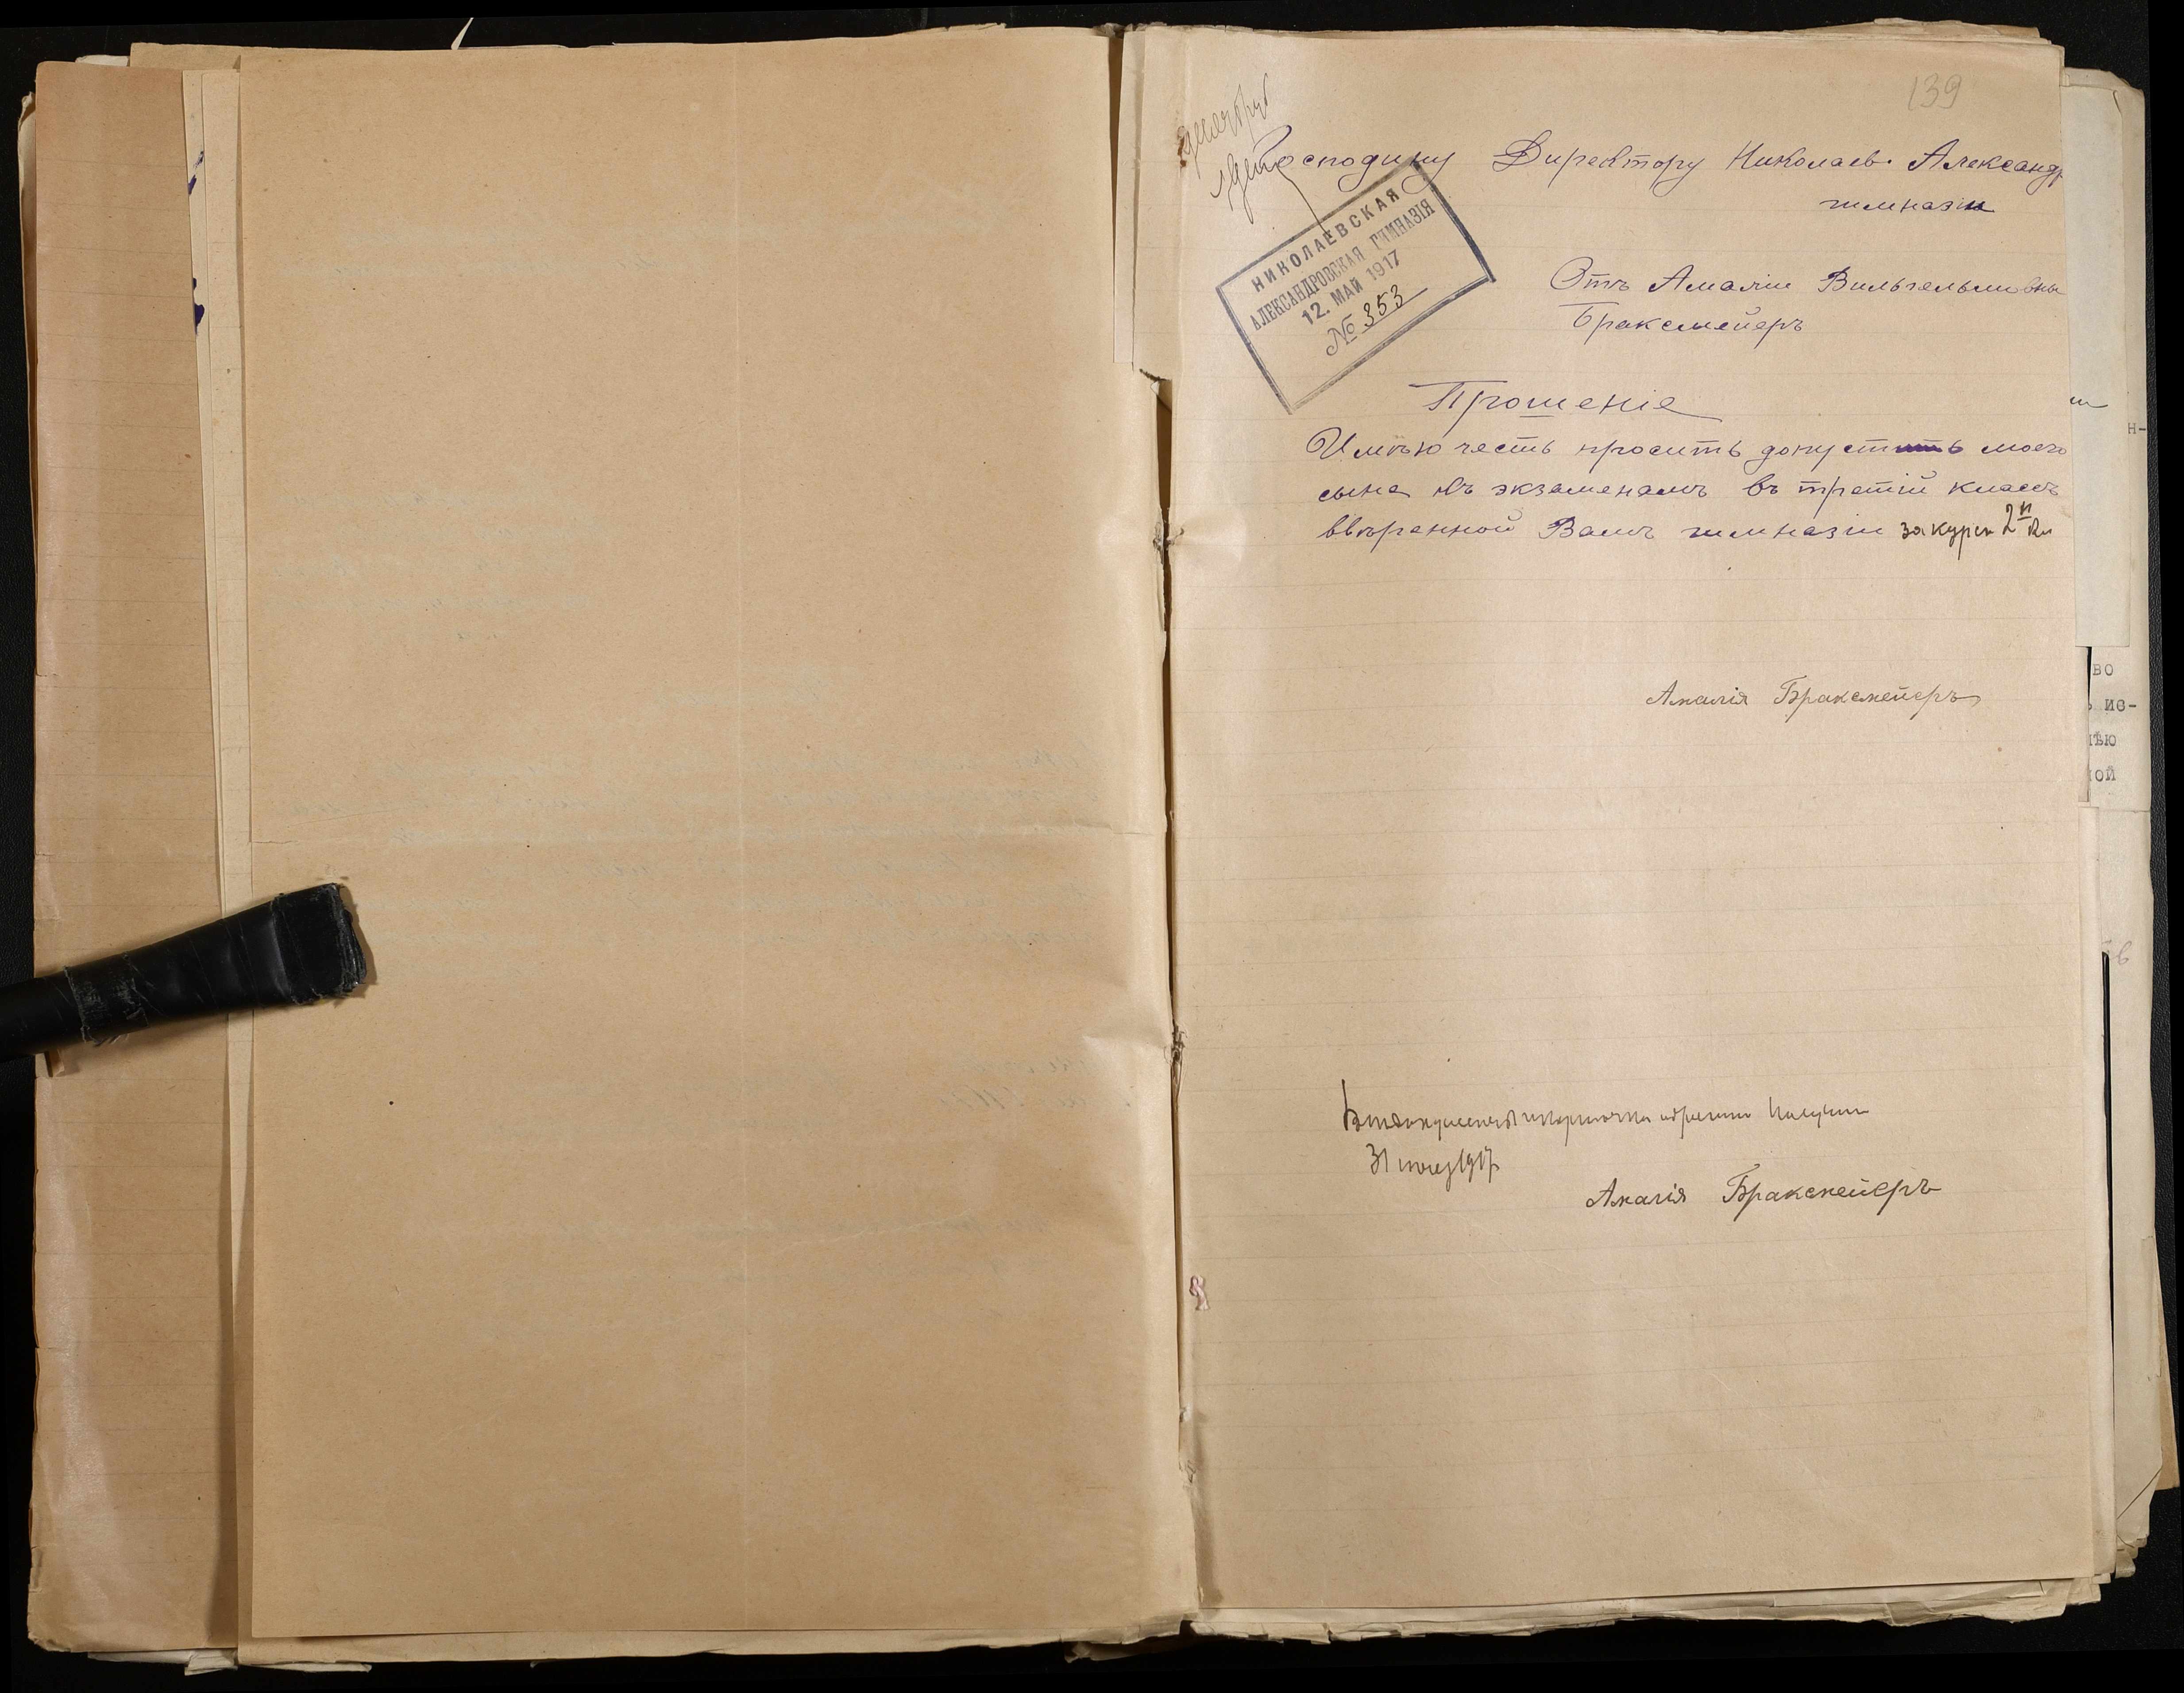 139
Господину Директору Николаев. Александр
гимназіи
НИКОЛАЕВСКАЯ
АЛЕКСАНДРОВСКАЯ ГИМНАЗІЯ
12. МАЙ 1917
№ 353
Отъ Амаліи Вильгельмовны
Браксмейеръ
Прошеніе
Имѣю честь просить допустить моего
сына къ экзаменамъ въ третій классъ
ввѣренной Вамъ гимназіи за курсъ 2 кл
Амалія Браксмейеръ
обратно получила
31 1917
Амалія Браксмейеръ
н-
во
ис-
ѣю
ой